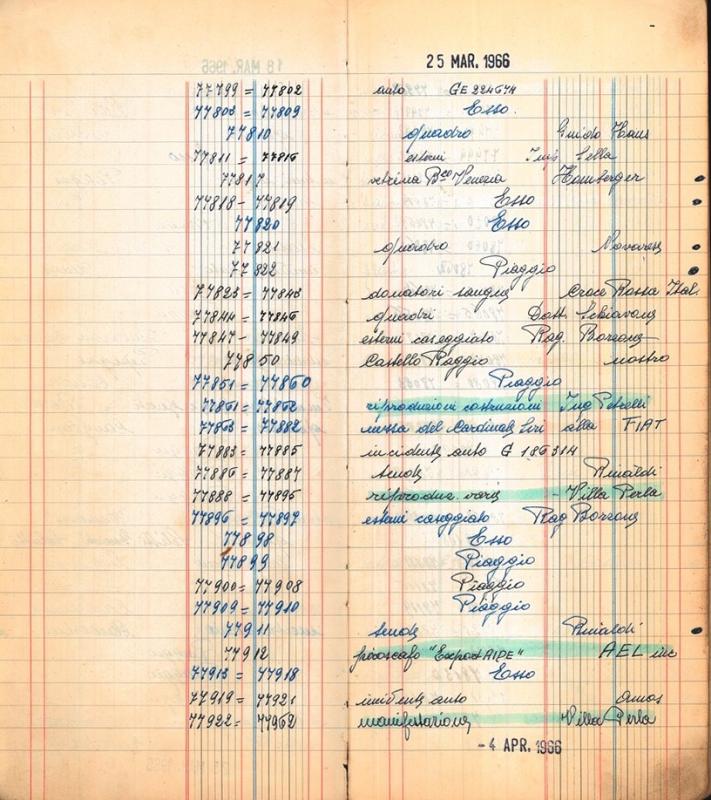 25 MAR. 1966
77799 = 77802 auto GE 224674
77803 = 77809 Esso.
77810 quadro Guido Haus
77811 = 77816 esterni Ing. Sella
77817 vetrina Bco Venezia Homberger
77818 - 77819 Esso
77820 Esso
77821 quadro
77822 Piaggio
77823 = 77843 donatori sangue Croce Rossa Ital.
77844 = 77846 quadri Dott. Schiavone
77847 - 77849 esterni caseggiato Rag. Borzone
77850 Castello Raggio nostro
77851 = 77860 Piaggio
77861 = 77862 riproduzioni costruzioni Ing Petrelli
77863 = 77882 messa del Cardinale Siri alla FIAT
77883 = 77885 incidente auto G 186314
77886 = 77887 Rinaldi
77888 = 77895 riproduz. varie - Villa Perla
77896 = 77897 esterni caseggiato Rag Borzone
77898 Esso
77899 Piaggio
77900 = 77908 Piaggio
77909 = 77910 Piaggio
77911 Rinaldi
77912 piroscafo "Export AIDE" AEL inc
77913 = 77918 Esso
77919 = 77921 incidente auto
77922 = 77962 manifestazione Villa Perla
- 4 APR. 1966